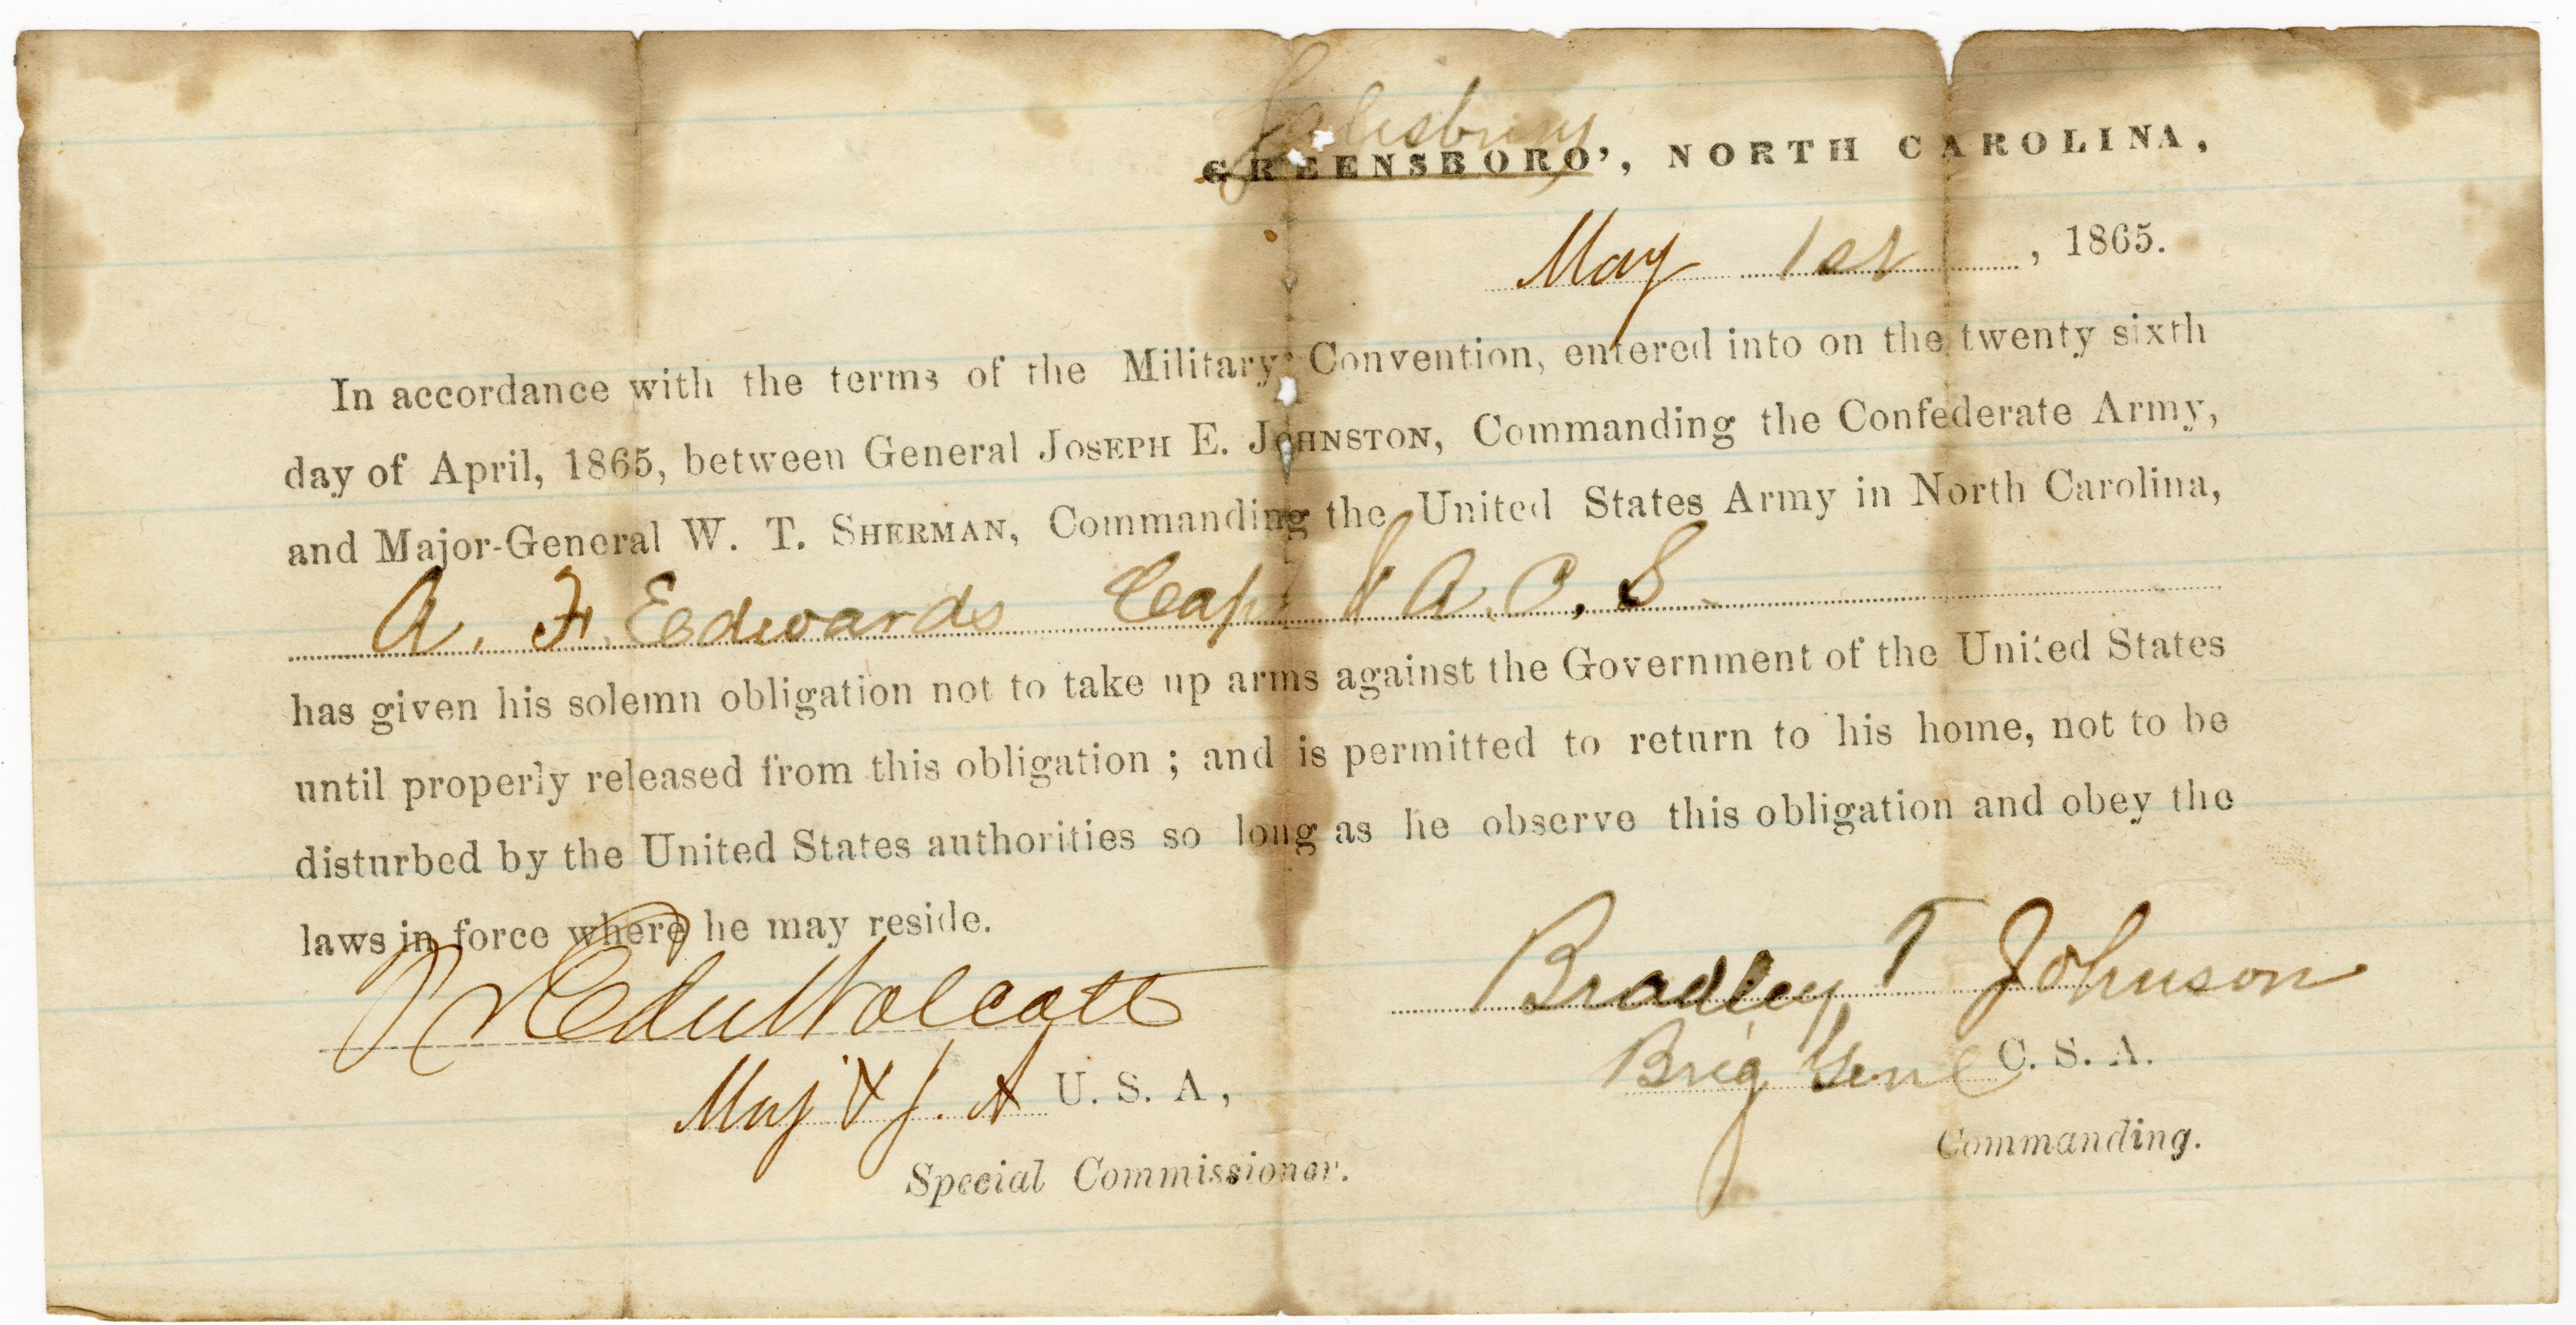 Salisbury
GREENSBORO', NORTH CAROLINA,
May 1st, 1865.
In accordance with the terms of the Military Convention, entered into on the twenty sixth
day of April, 1865, between General JOSEPH E. JOHNSTON, Commanding the Confederate Army,
and Major-General W. T. SHERMAN, Commanding the United States Army in North Carolina,
A. F. Edwards Capt & A. C. S.
has given his solemn obligation not to take up arms against the Government of the United States
until properly released from this obligation ; and is permitted to return to his home, not to be
disturbed by the United States authorities so long as he observe this obligation and obey the
laws in force where he may reside.
Wolcott
Bradley T Johnson
Maj & J. A U. S. A,
Brig Genl C. S. A.
Special Commissioner.
Commanding.